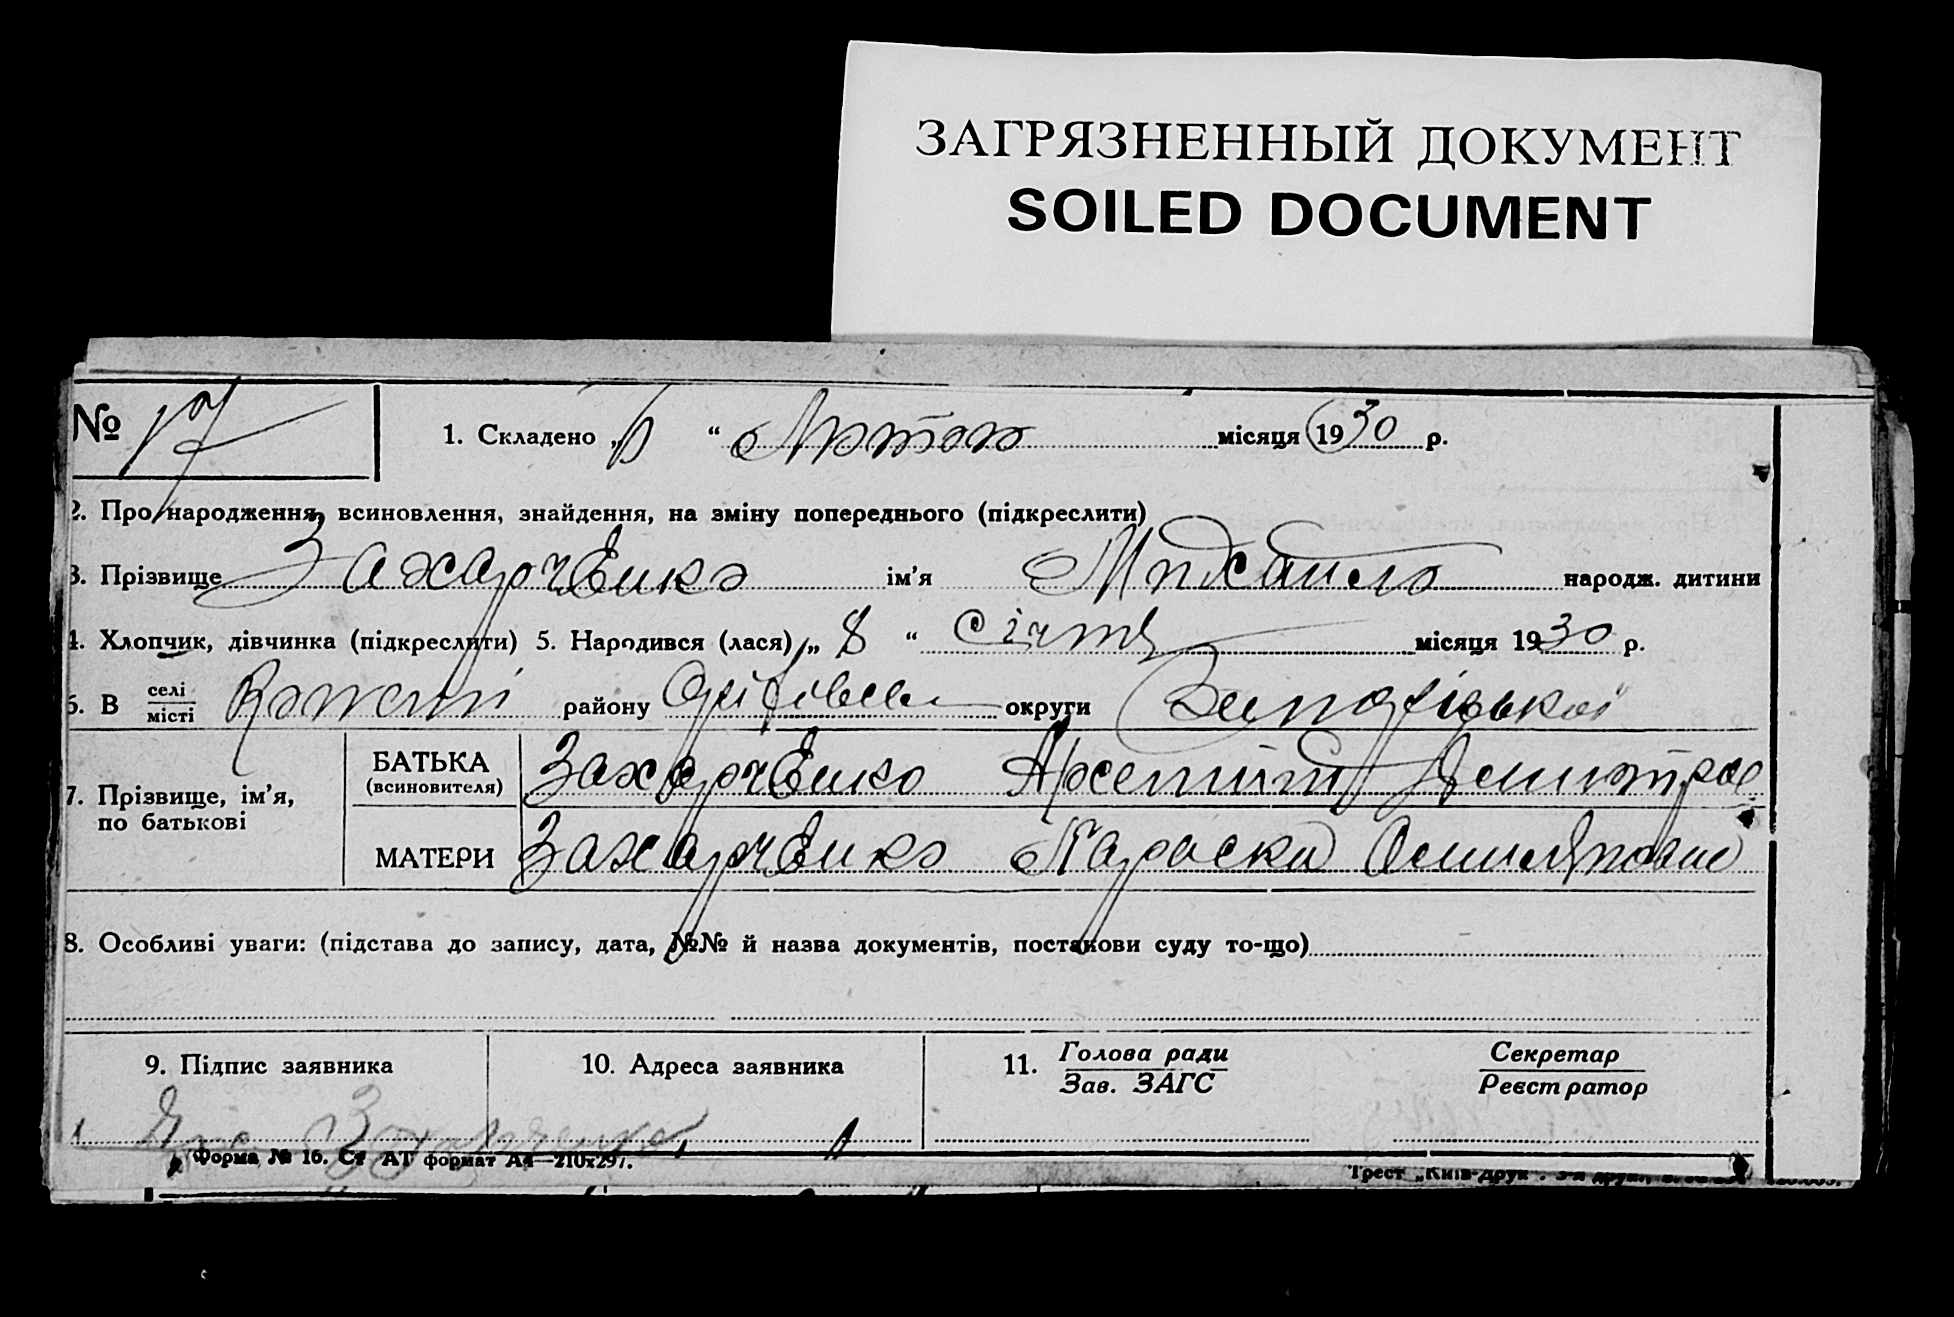 ЗАГРЯЗНЕННЫЙ ДОКУМЕНТ
SOILED DOCUMENT
№ 17
1. Складено „ “ Лютого місяця 1930 р.
2. Про народження, всиновлення, знайдення, на зміну попереднього (підкреслити)
3. Прізвище Захарченко ім'я Михайло народж. дитини
4. Хлопчик, дівчинка (підкреслити) 5. Народився (лася) „ 8 “ Січня місяця 1930 р.
6. В селі/місті району округи
7. Прізвище, ім'я, по батькові
БАТЬКА (всиновителя) Захарченко
МАТЕРИ Захарченко Параска
8. Особливі уваги: (підстава до запису, дата, №№ й назва документів, постанови суду то-що)
9. Підпис заявника 10. Адреса заявника 11. Голова ради/Зав. ЗАГС Секретар/Реєстратор
Захарченко
Форма № 16. Ст АТ формат А4—210х297.
Трест „Київ-друк“.